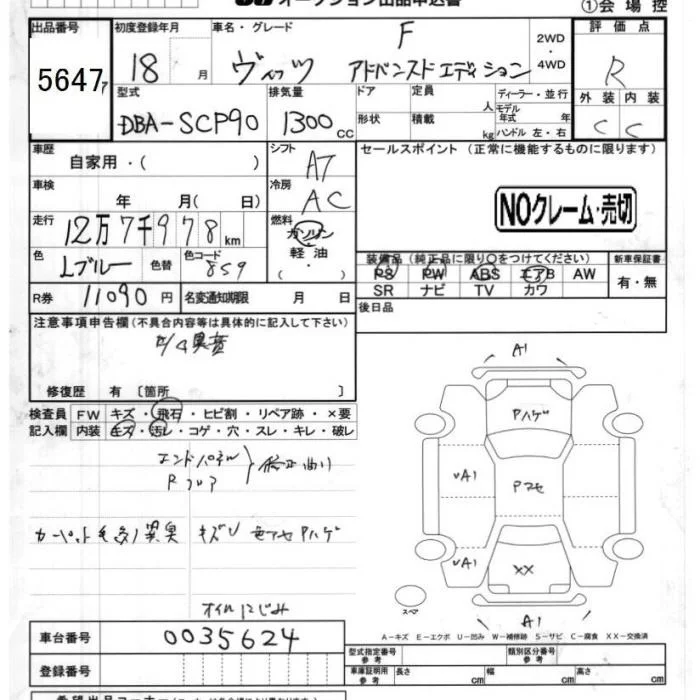 オークション出品申込書
①会場控
出品番号 初度登録年月 車名・グレード 2WD・4WD 評価点
5647 18 月 ヴィッツ F アドバンスドエディション R
型式 排気量 ドア 定員 人 ディーラー・並行 外装 内装
DBA-SCP90 1300cc 形状 積載 kg モデル年式 年 ハンドル 左・右 C C
車歴 自家用・( ) シフト AT セールスポイント (正常に機能するものに限ります)
車検 年 月( 日) 冷房 AC NOクレーム・売切
走行 12万7千978km 燃料 ガソリン 軽油 ( ・ )
色 Lブルー 色替 色コード 8S9 装備品 (純正品に限り○をつけてください) 新車保証書
PS PW ABS エアB AW 有・無
SR ナビ TV カワ
R券 11090円 名変通知期限 月 日 後日品
注意事項申告欄(不具合内容等は具体的に記入して下さい)
異音
修復歴 有 [箇所 ]
検査員 FW キズ・飛石・ヒビ割・リペア跡・×要
記入欄 内装 キズ・汚レ・コゲ・穴・スレ・キレ・破レ
エンドパネル
Rフロア 修正曲り
カーペット 異臭 キズU Pハゲ
オイルにじみ
A1
Pハゲ
UA1
Pマセ
UA1
XX
スペア
A1
A-キズ E-エクボ U-凹み W-補修跡 S-サビ C-腐食 XX-交換済
車台番号 0035624 型式指定番号 参考 類別区分番号 参考
登録番号 車庫証明用 参考 長さ cm 幅 cm 高さ cm
希望出品コーナー